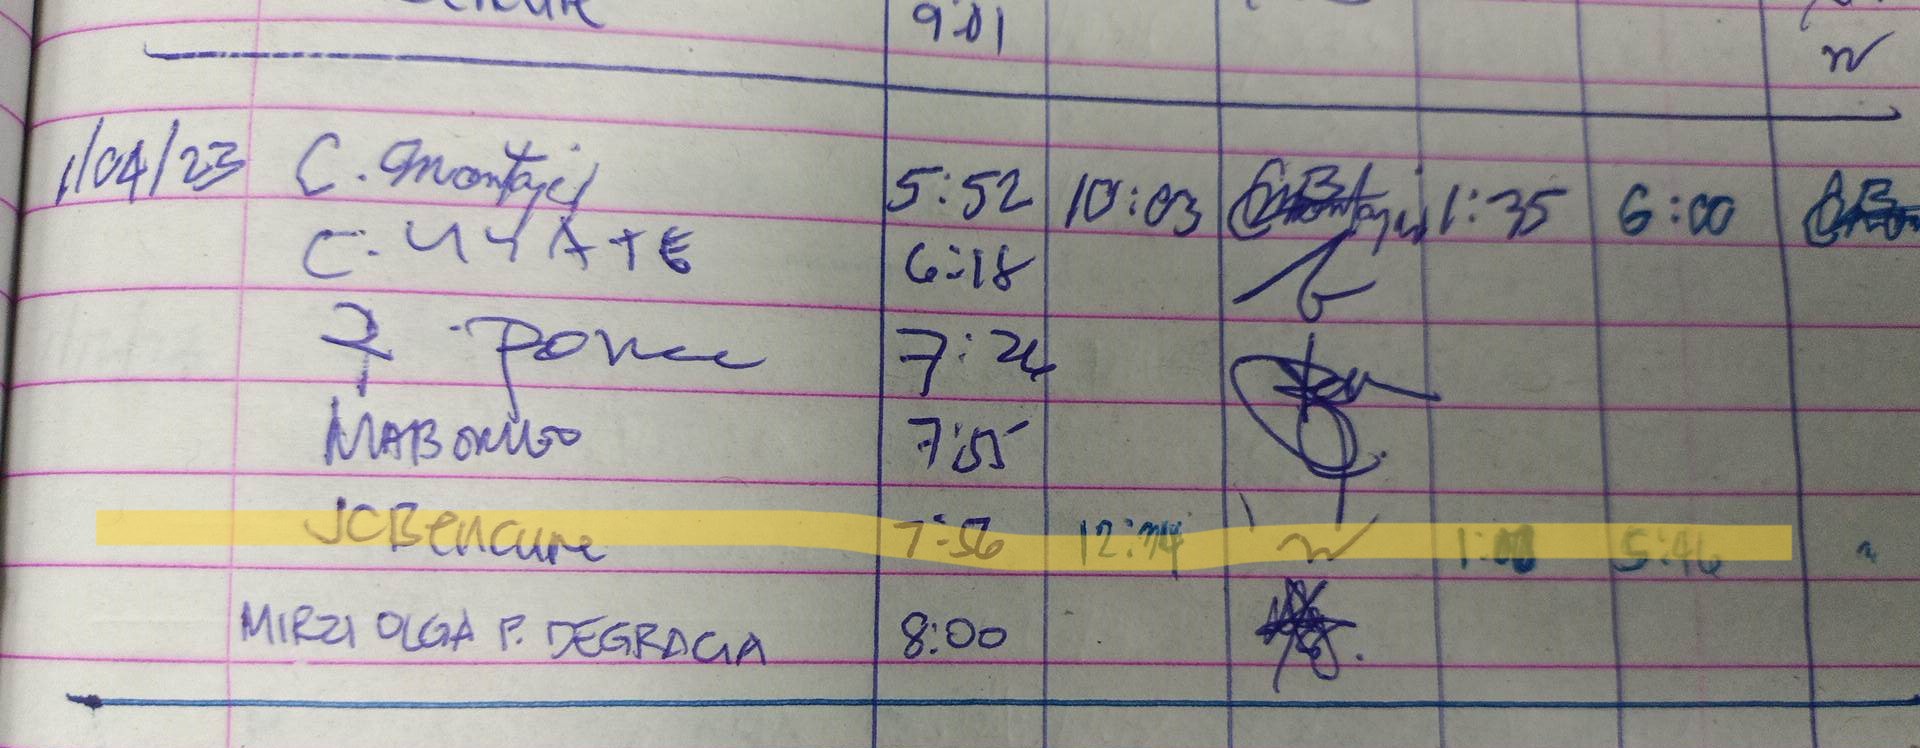 9:01
1/04/23 C. Montajes 5:52 10:03 1:35 6:00
C. UYATE 6:18
Ponce 7:24
MABONGO 7:55
JCBencure 7:56 12:34 1:00 5:46
MIRZI OLGA P. DEGRACIA 8:00